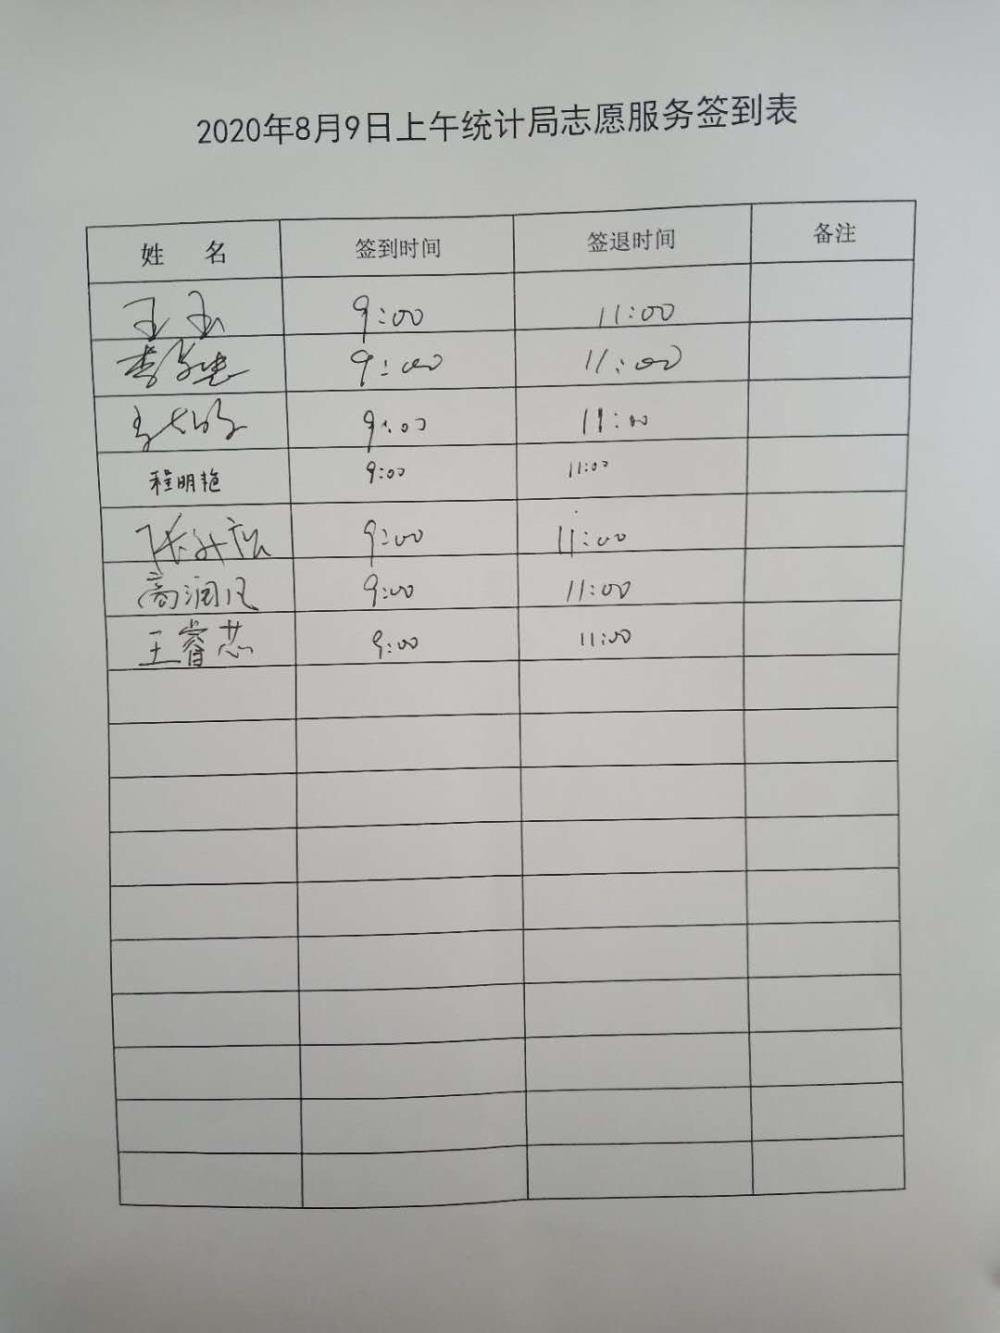 2020年8月9日上午统计局志愿服务签到表
姓 名 签到时间 签退时间 备注
王玉 9:00 11:00
9:00 11:00
9:00 11:00
程明艳 9:00 11:00
9:00 11:00
高润凡 9:00 11:00
王睿芯 9:00 11:00